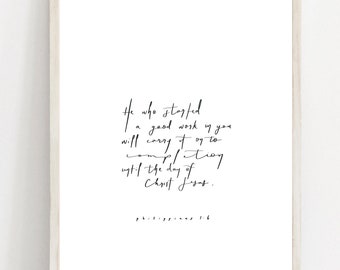 He who started
a good work in you
will carry it on to
completion
until the day of
Christ Jesus.
philippians 1:6